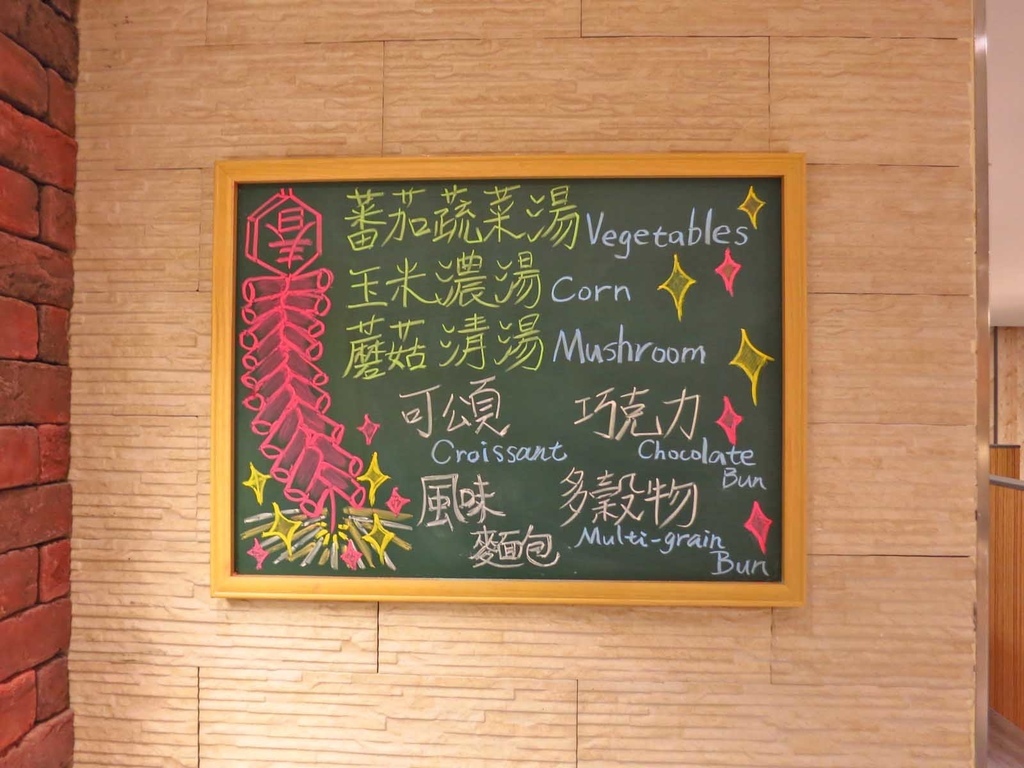 蕃茄蔬菜湯 Vegetables
玉米濃湯 Corn
蘑菇清湯 Mushroom
可頌 巧克力
Croissant Chocolate
Bun
風味 多穀物
麵包 Multi-grain
Bun